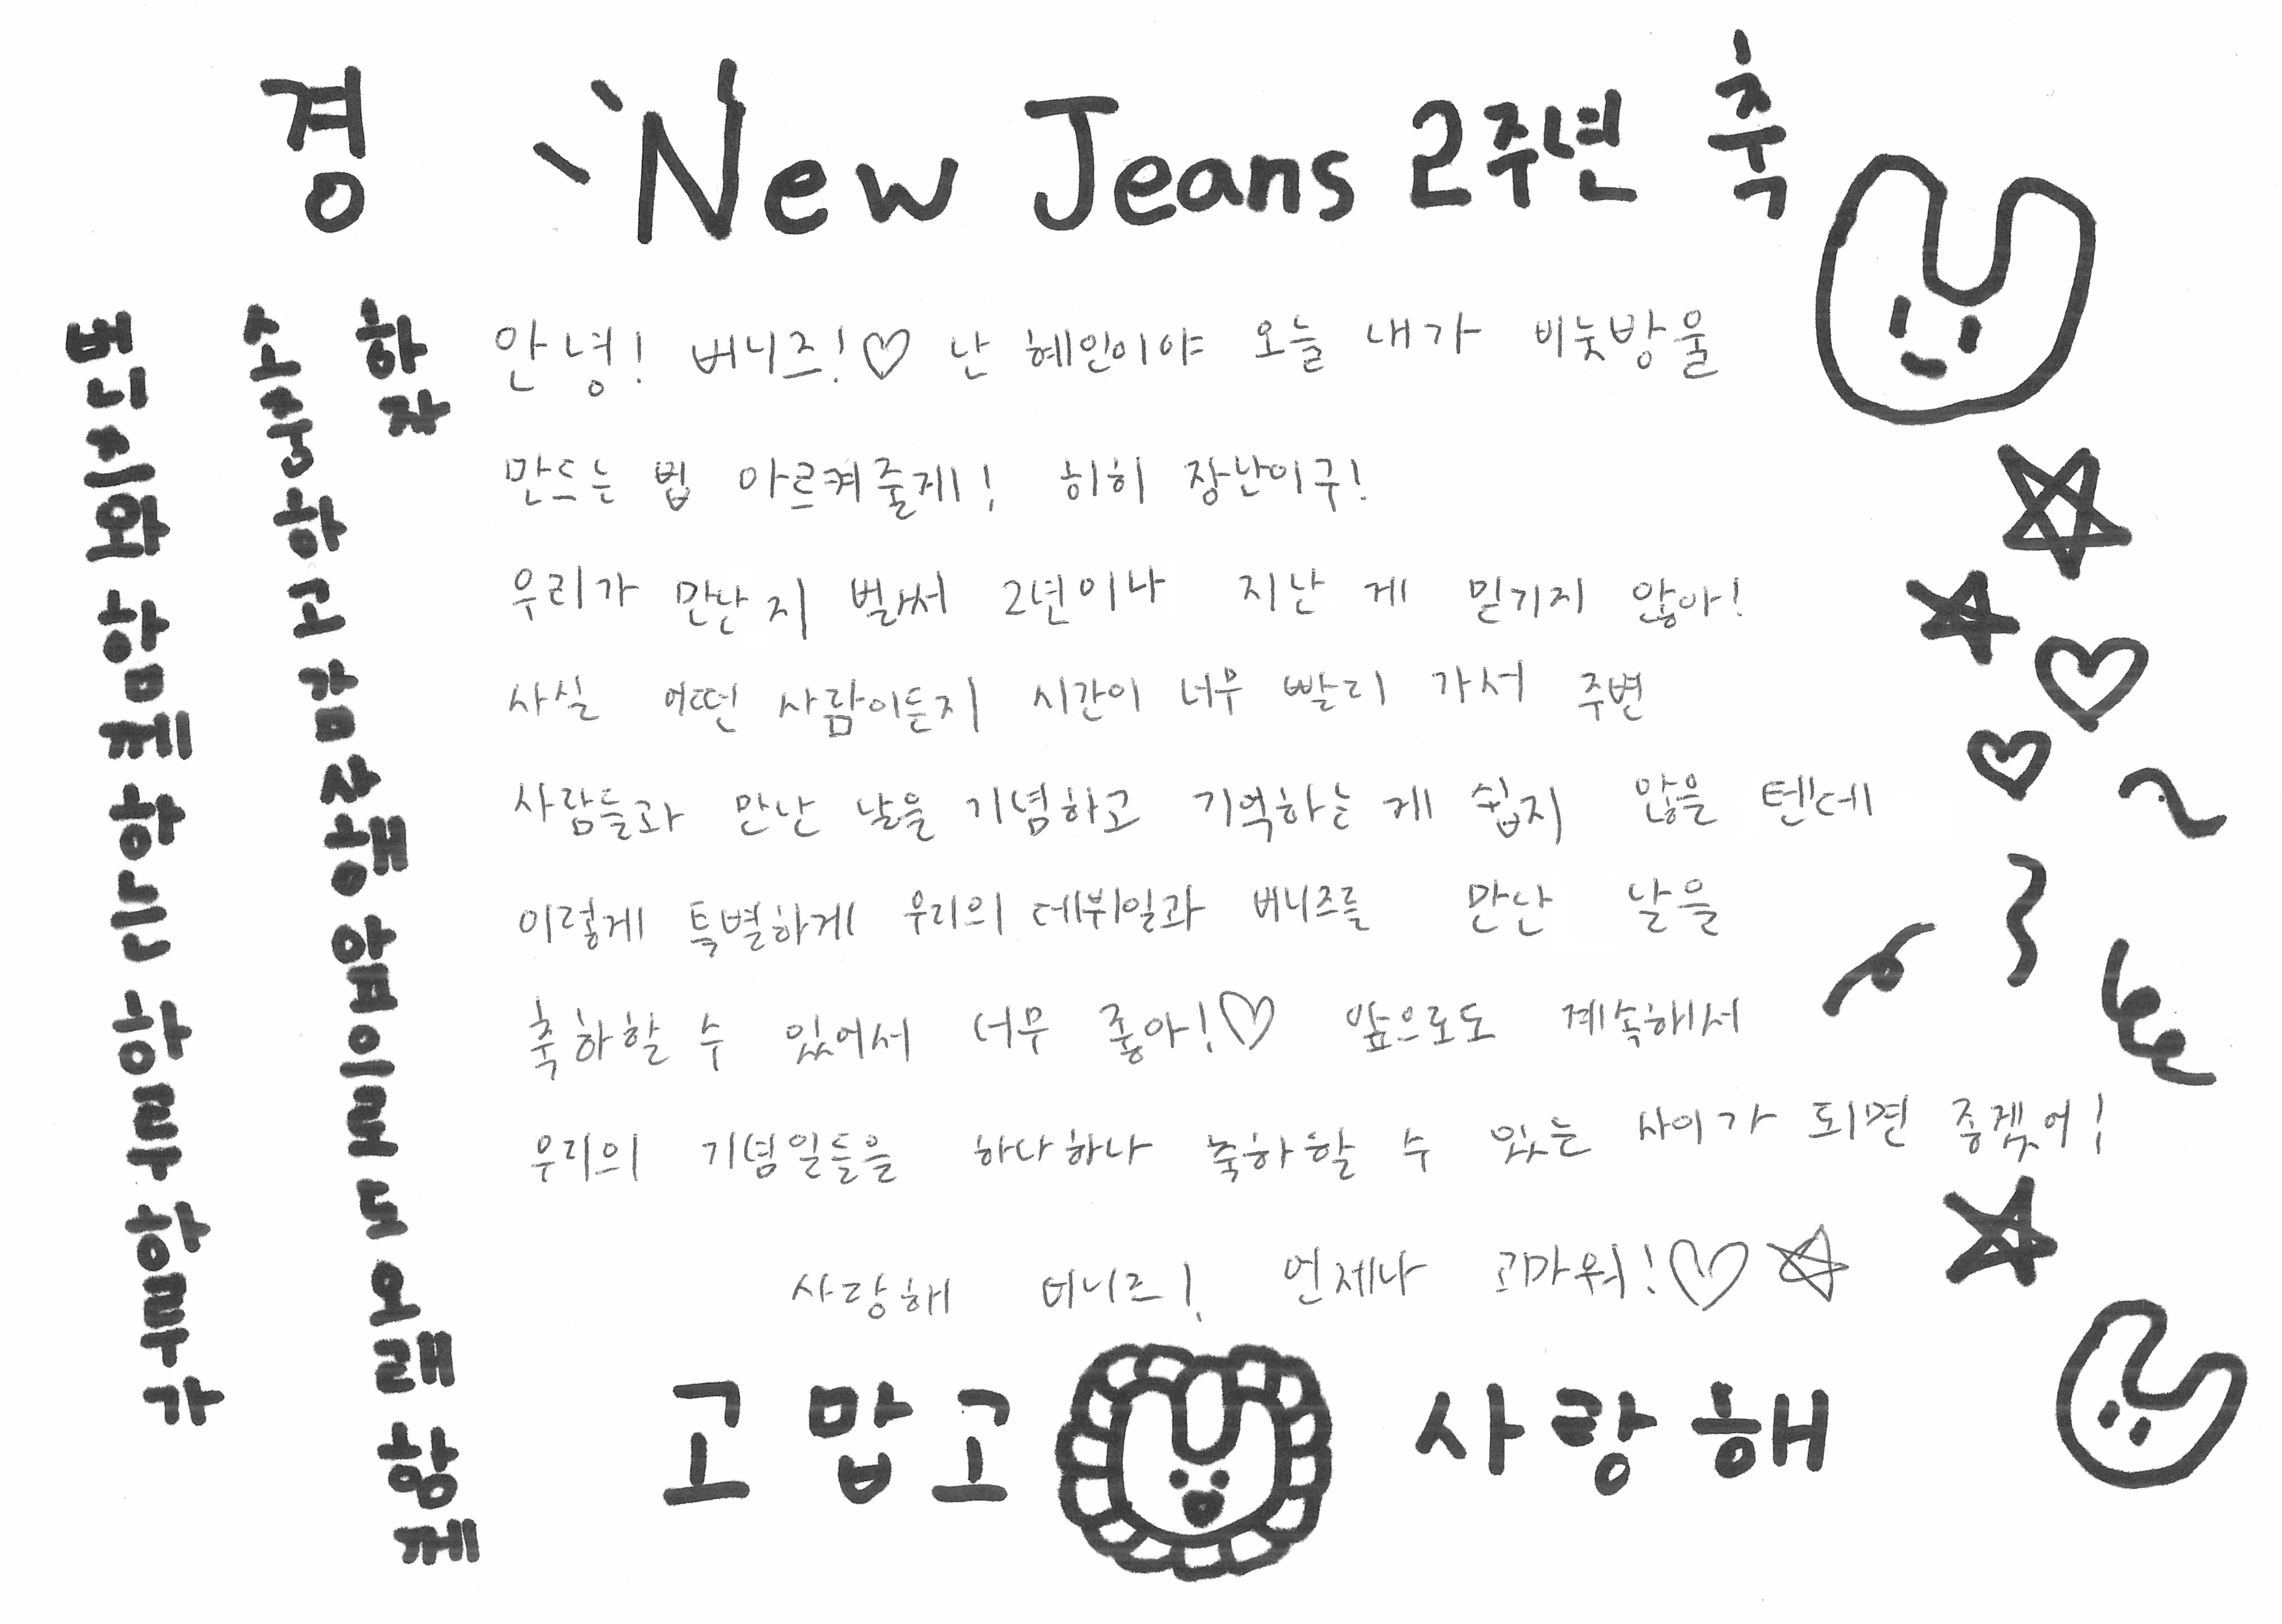 경 New Jeans 2주년 축
안녕! 버니즈!♡ 난 혜인이야 오늘 내가 비눗방울
만드는 법 아르켜줄게! 히히 장난이구!
우리가 만난지 벌써 2년이나 지난 게 믿기지 않아!
사실 어떤 사람이든지 시간이 너무 빨리 가서 주변
사람들과 만난 날을 기념하고 기억하는 게 쉽지 않을 텐데
이렇게 특별하게 우리의 데뷔일과 버니즈를 만난 날을
축하할 수 있어서 너무 좋아!♡ 앞으로도 계속해서
우리의 기념일들을 하나하나 축하할 수 있는 사이가 되면 좋겠어!
사랑해 버니즈! 언제나 고마워!♡☆
고맙고 사랑해
버니즈와 함께하는 하루하루가
소중하고 감사해 앞으로도 오래 함께
하자